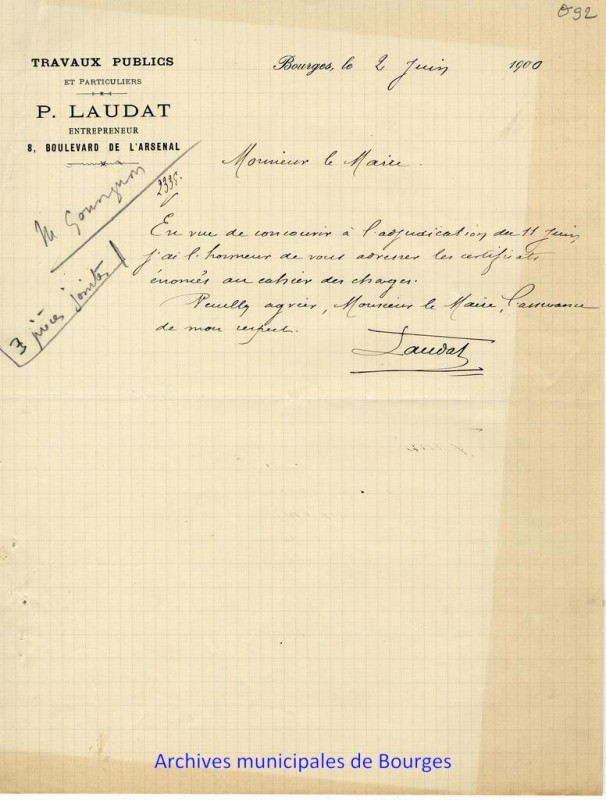 O92
TRAVAUX PUBLICS
ET PARTICULIERS
P. LAUDAT
ENTREPRENEUR
8, BOULEVARD DE L'ARSENAL
Bourges, le 2 Juin 1900
Monsieur le Maire.
2335.
M
3 pièces jointes
En vue de concourir à l'adjudication du 11 Juin
j'ai l'honneur de vous adresser les certificats
énoncés au cahier des charges.
Veuillez agréer, Monsieur le Maire, l'assurance
de mon respect.
Laudat
Archives municipales de Bourges